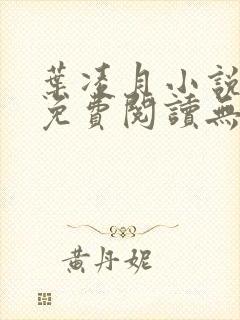 葉凌月小說
免費閱讀無
黃丹妮